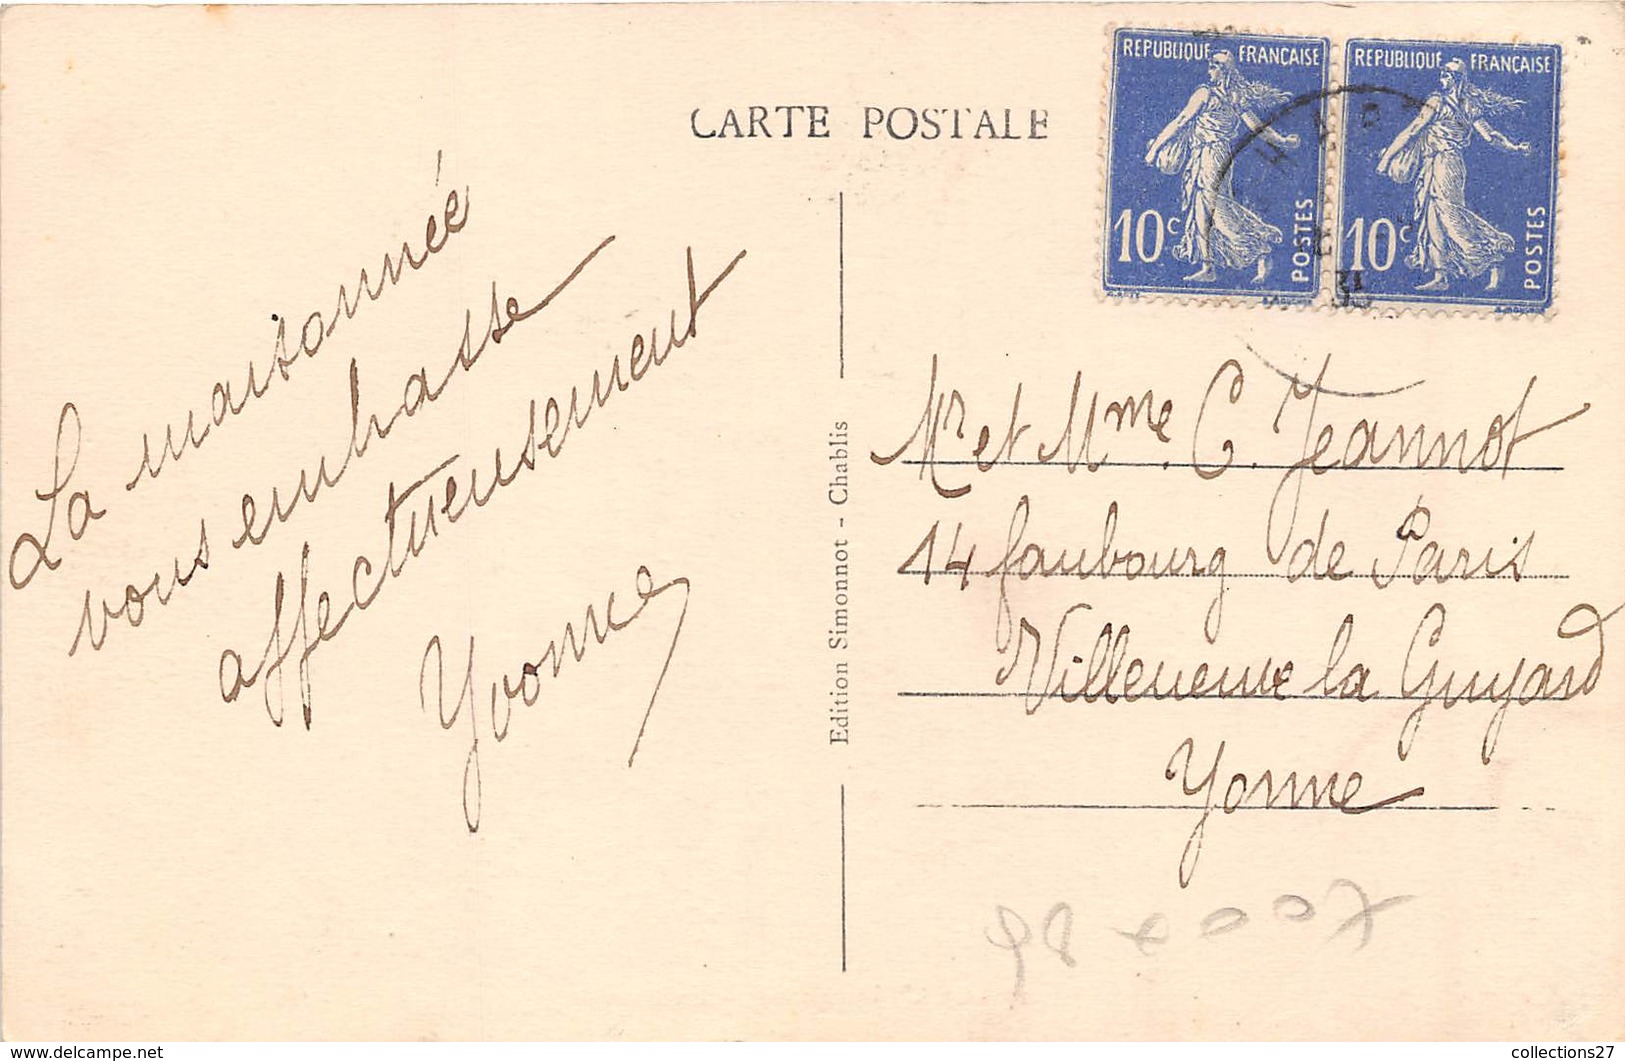 CARTE POSTALE
REPUBLIQUE FRANÇAISE
10c
POSTES
REPUBLIQUE FRANÇAISE
10c
POSTES
La maisonnée
vous embrasse
affectueusement
Yvonne
Edition Simonnot - Chablis
Mr et Mme. C. Jeannot
14 faubourg de Paris
Villeneuve la Guyard
Yonne
collections27